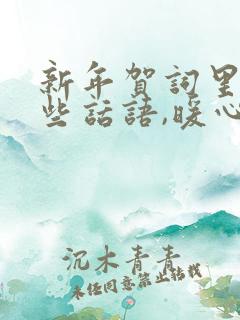 新年賀詞里
些話語,暖心
沉木青青
未经同意禁止转载